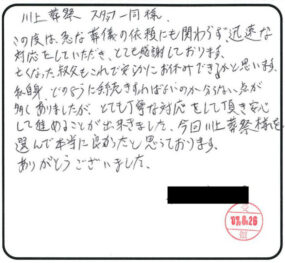 川上葬祭 スタッフ一同様
この度は、急な葬儀の依頼にも関わらず、迅速な
対応をしていただき、とても感謝しております。
亡くなった叔父もこれで安らかにお休みできるかと思います。
私自身、どのように対処すればよいのか分らない点が
多くありましたが、とても丁寧な対応をして頂き安心
して進めることが出来ました。今回川上葬祭様を
選んで本当に良かったと思っております。
ありがとうございました。